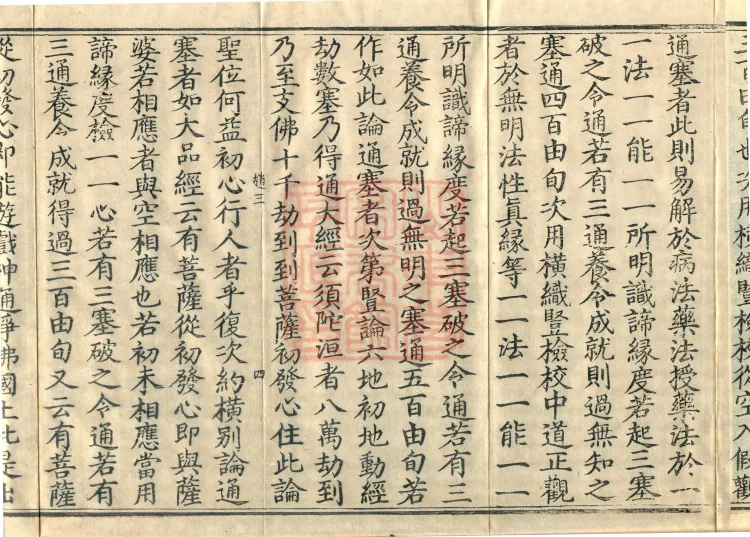 三百由旬也次用橫織豎檢校從空入假觀
通塞者此則易解於病法藥法授藥法於一
一法一一能一一所明識諦緣度若起三塞
破之令通若有三通養令成就則過無知之
塞通四百由旬次用橫織豎檢校中道正觀
者於無明法性真緣等一一法一一能一一
所明識諦緣度若起三塞破之令通若有三
通養令成就則過無明之塞通五百由旬若
作如此論通塞者次第豎論六地初地動經
劫數塞乃得通大經云須陀洹者八萬劫到
乃至支佛十千劫到到菩薩初發心住此論
趙三
四
聖位何益初心行人者乎復次約橫別論通
塞者如大品經云有菩薩從初發心即與薩
婆若相應者與空相應也若初未相應當用
諦緣度檢一一心若有三塞破之令通若有
三通養令成就得過三百由旬又云有菩薩
從初發心即能遊戲神通淨佛國土此是出